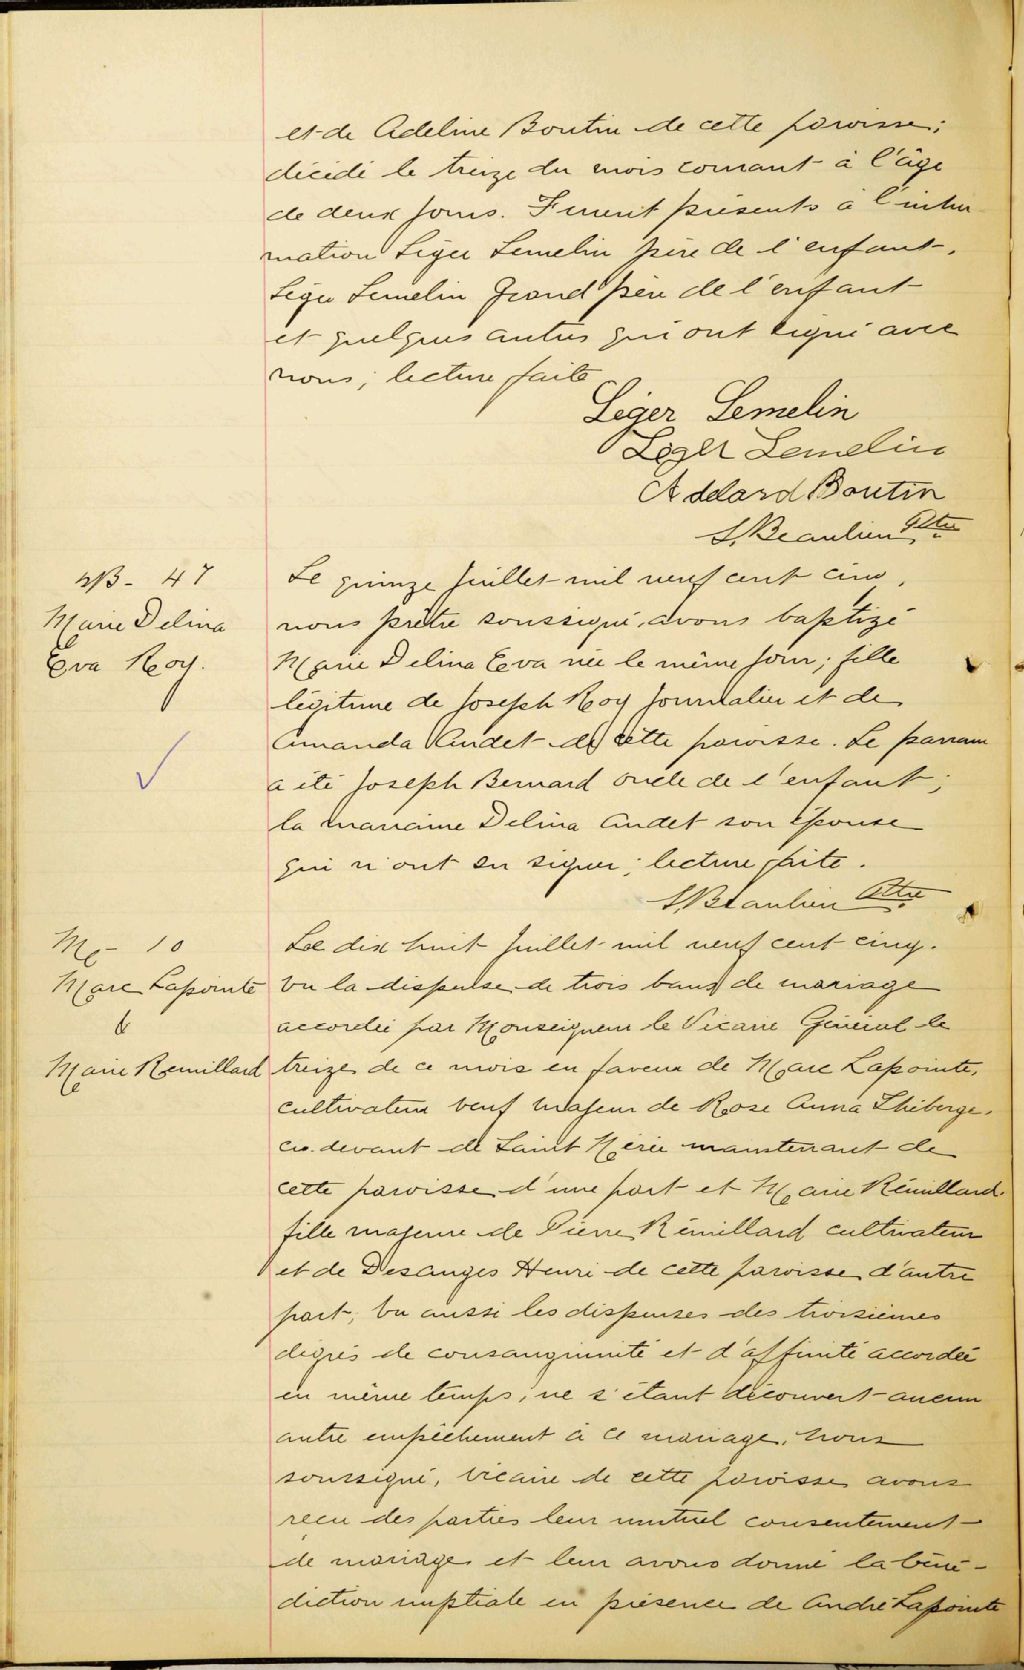 et de Adeline Boutin de cette paroisse;
décédé le treize du mois courant à l'âge
de deux jours. Furent présents à l'inhu-
mation Léger Lemelin père de l'enfant,
Léger Lemelin grand père de l'enfant
et quelques autres qui ont signé avec
nous; lecture faite
Léger Lemelin
Leger Lemelin
Adelard Boutin
S. Beaulieu Ptre
B - 47
Marie Delina
Eva Roy.
Le quinze juillet mil neuf cent cinq,
nous prêtre soussigné, avons baptizé
Marie Delina Eva née le même jour; fille
légitime de Joseph Roy journalier et de
Amanda Audet de cette paroisse. Le parrain
a été Joseph Bernard oncle de l'enfant;
la marraine Delina Audet son épouse
qui n'ont su signer; lecture faite.
S. Beaulieu Ptre
M - 10
Marc Lapointe
&
Marie Remillard
Le dix huit juillet mil neuf cent cinq.
vu la dispense de trois bans de mariage
accordée par Monseigneur le Vicaire Général le
treize de ce mois en faveur de Marc Lapointe,
cultivateur veuf majeur de Rose Anna Théberge,
ci-devant de Saint Nérée maintenant de
cette paroisse d'une part et Marie Rémillard.
fille majeure de Pierre Rémillard cultivateur
et de Desanges Henri de cette paroisse d'autre
part, vu aussi les dispenses des troisièmes
dégrés de consanguinité et d'affinité accordée
en même temps; ne s'étant découvert aucun
autre empêchement à ce mariage, nous
soussigné, vicaire de cette paroisse avons
reçu des parties leur mutuel consentement
de mariage et leur avons donné la béné-
diction nuptiale en présence de André Lapointe